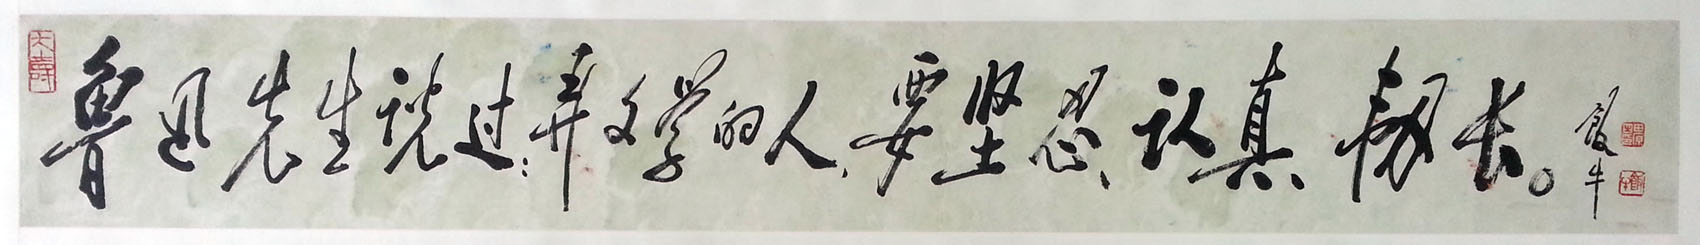 鲁迅先生说过:弄文学的人,要坚忍、认真、韧长。